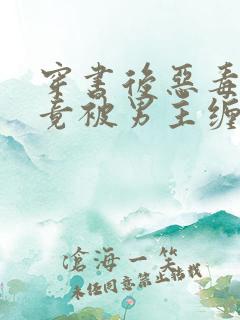 穿书後恶毒
竟被男主缠
滄海一笑
未经同意禁止转载